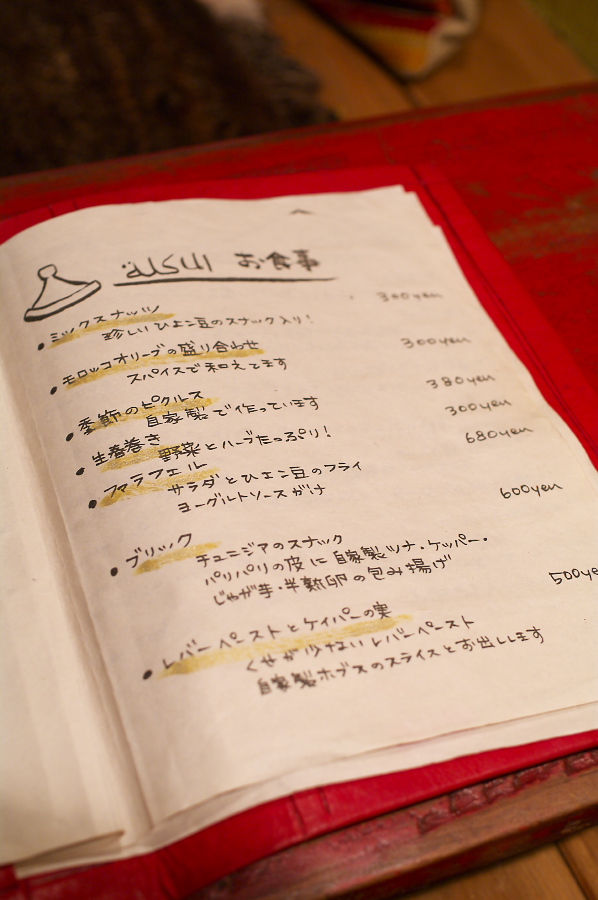 お食事
ミックスナッツ 300yen
珍しいひよこ豆のスナック入り!
モロッコオリーブの盛り合わせ 300yen
スパイスで和えてます
季節のピクルス 380yen
自家製で作っています
生春巻き 300yen
野菜とハーブたっぷり!
ファラフェル 680yen
サラダとひよこ豆のフライ
ヨーグルトソースがけ
ブリック 600yen
チュニジアのスナック
パリパリの皮に自家製ツナ・ケッパー・
じゃが芋・半熟卵の包み揚げ
レバーペーストとケイパーの実 500ye
くせが少ないレバーペースト
自家製ホブスのスライスとお出しします